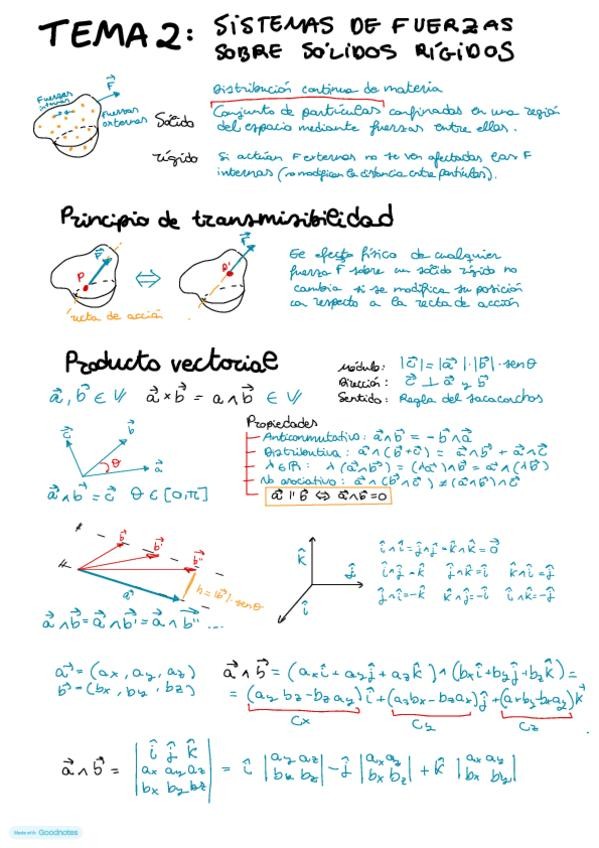 TEMA 2: SISTEMAS DE FUERZAS
SOBRE SÓLIDOS RÍGIDOS
Fuerzas
internas
F⃗
fuerzas
externas
Distribución continua de materia
Sólido
Conjunto de partículas confinadas en una región
del espacio mediante fuerzas entre ellas.
rígido
Si actúan F externas no se ven afectadas las F
internas (no modifican la distancia entre partículas).
Principio de transmisibilidad
P
F⃗
⇔
P'
F⃗
recta de acción
El efecto físico de cualquier
fuerza F sobre un sólido rígido no
cambia si se modifica su posición
con respecto a la recta de acción
Producto vectorial
módulo: |c⃗| = |a⃗|·|b⃗|·senθ
Dirección: c⃗ ⊥ a⃗ y b⃗
Sentido: Regla del sacacorchos
a⃗, b⃗ ∈ V a⃗ × b⃗ = a ∧ b⃗ ∈ V
Propiedades
Anticonmutativo: a⃗∧b⃗ = -b⃗∧a⃗
Distributiva: a⃗∧(b⃗+c⃗) = a⃗∧b⃗ + a⃗∧c⃗
λ∈ℝ: λ(a⃗∧b⃗) = (λa⃗)∧b⃗ = a⃗∧(λb⃗)
No asociativo: a⃗∧(b⃗∧c⃗) ≠ (a⃗∧b⃗)∧c⃗
a⃗ ∥ b⃗ ⇔ a⃗∧b⃗=0
c⃗
b⃗
θ
a⃗
a⃗∧b⃗=c⃗ θ∈[0,π]
b⃗
b⃗'
b⃗''
a⃗
h=|b⃗|·senθ
a⃗∧b⃗=a⃗∧b⃗'=a⃗∧b⃗''...
k̂
ĵ
î
î∧î=ĵ∧ĵ=k̂∧k̂=0⃗
î∧ĵ=k̂ ĵ∧k̂=î k̂∧î=ĵ
ĵ∧î=-k̂ k̂∧ĵ=-î î∧k̂=-ĵ
a⃗=(ax, ay, az)
b⃗=(bx, by, bz)
a⃗∧b⃗=(axî+ayĵ+azk̂)∧(bxî+byĵ+bzk̂)=
=(ay bz-bz ay)î+(azbx-bzax)ĵ+(axby-bxay)k̂
Cx Cy Cz
a⃗∧b⃗ = |î ĵ k̂| = î |ay az| - ĵ |ax az| + k̂ |ax ay|
|ax ay az| |by bz| |bx bz| |bx by|
|bx by bz|
Made with Goodnotes